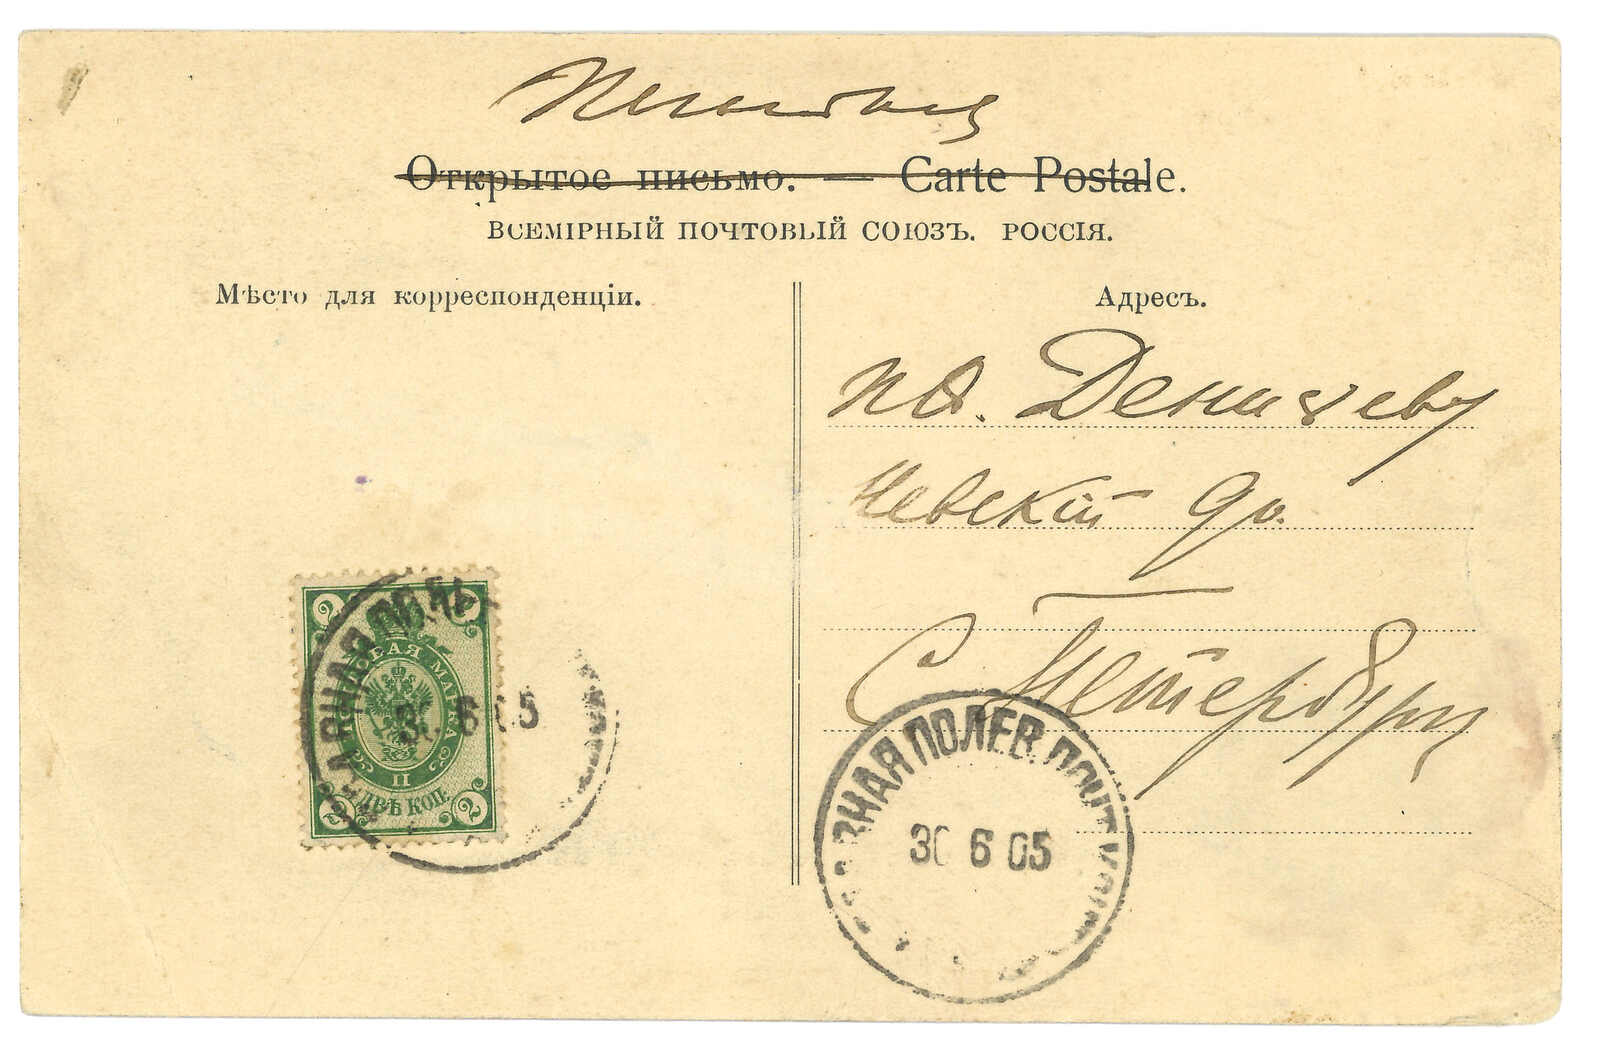 Открытое письмо. — Carte Postale.
ВСЕМІРНЫЙ ПОЧТОВЫЙ СОЮЗЪ. РОССІЯ.
Мѣсто для корреспонденціи.
Адресъ.
Невскій 90.
С Петербург
ПОЧТОВАЯ МАРКА
2 2
II
ДВѢ КОП.
2 2
30 6 05
ПОЛЕВ. ПОЧТ. КОНТ
30 6 05